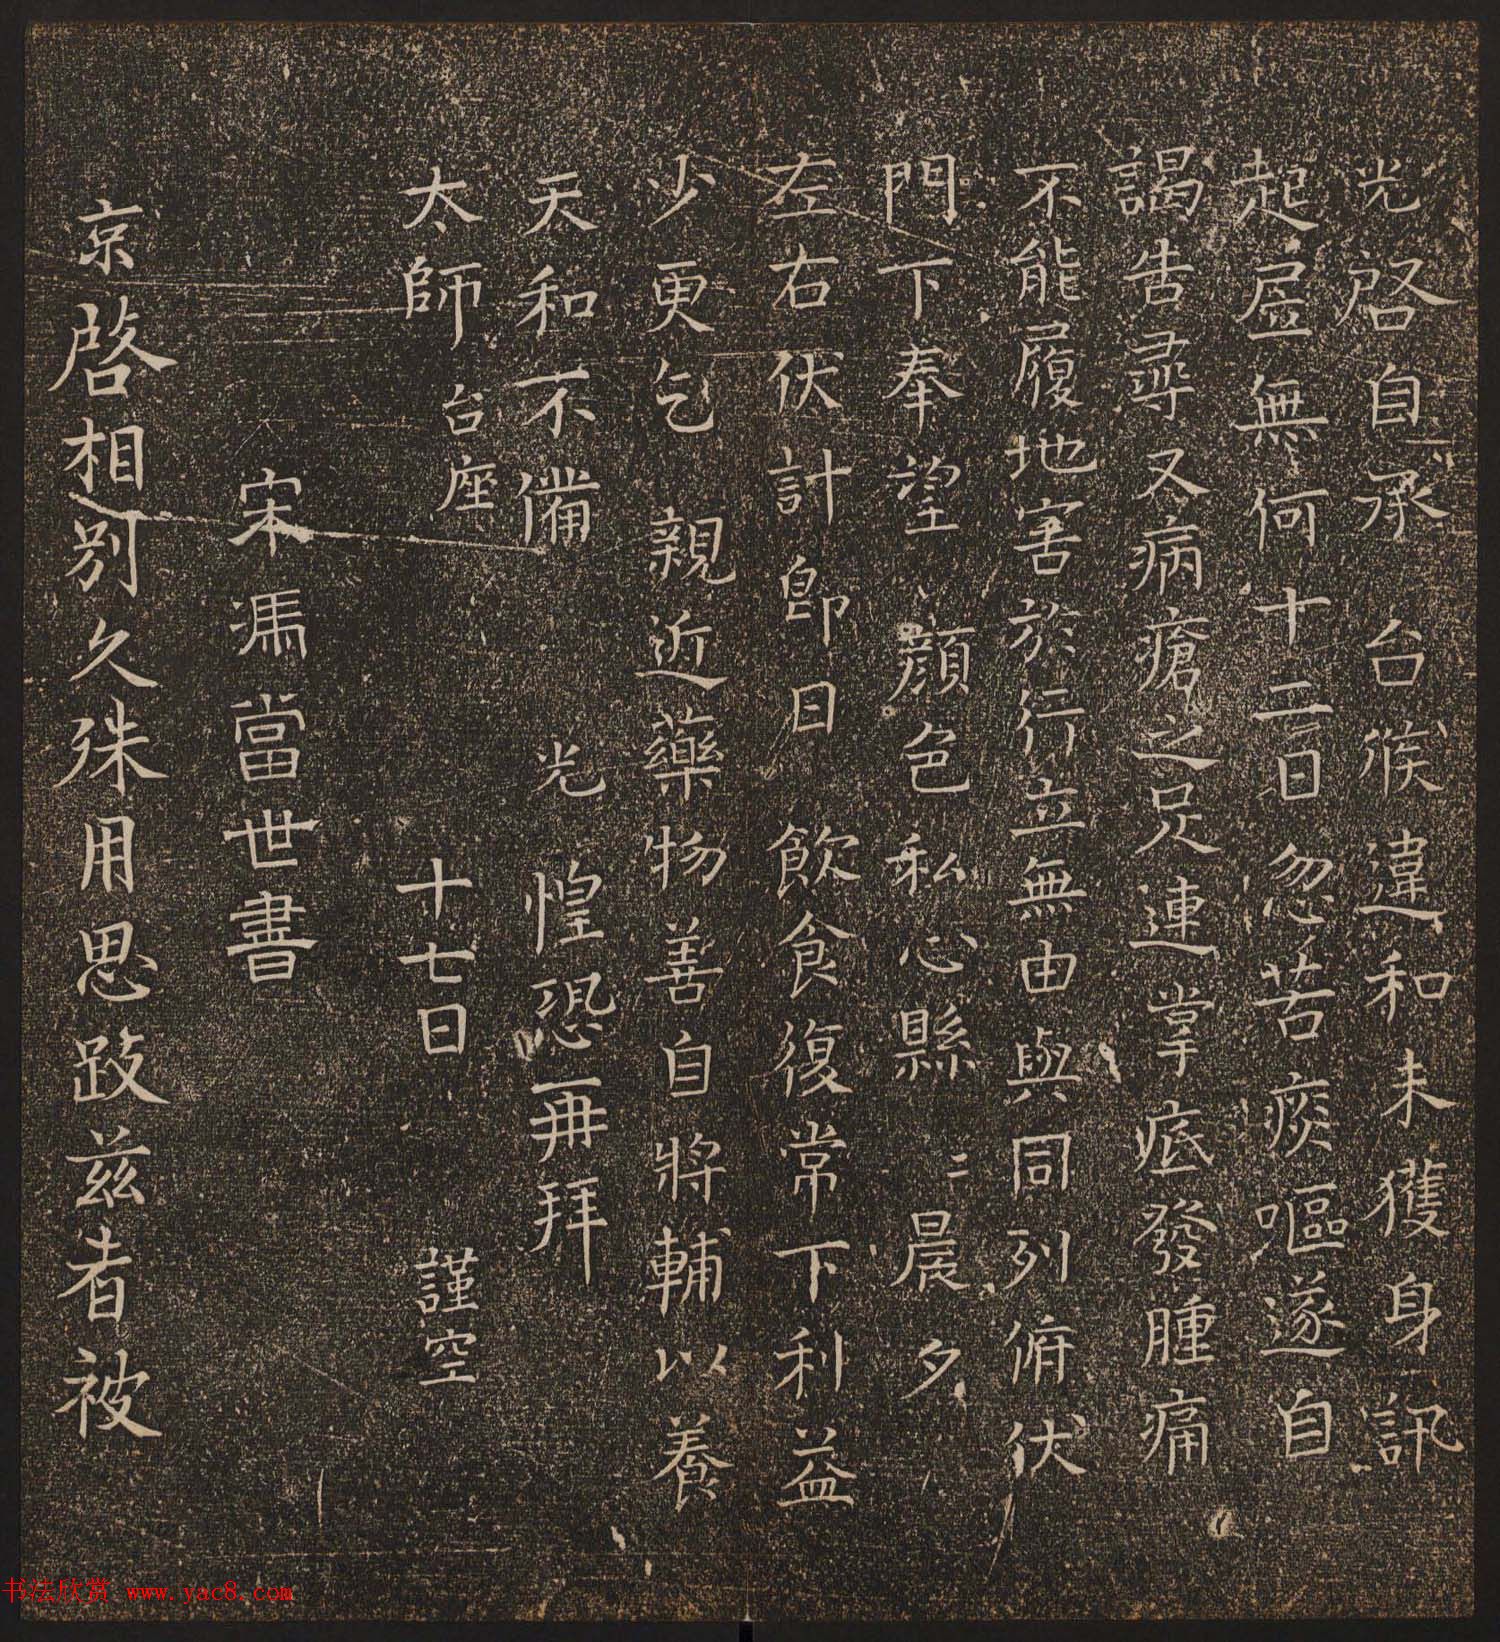 光啓自承 台候違和未獲身訊
起居無何十二日忽苦痰嘔遂自
謁告尋又病瘡之足連掌底發腫痛
不能履地害於行立無由與同列俯伏
門下奉望 顏色私心縣〻晨夕
左右伏計即日 飲食復常下利益
少更乞 親近藥物善自將輔以養
天和不備 光 惶恐再拜
太師台座 十七日 謹空
宋馮當世書
京啓相別久殊用思跂茲者被
书法欣赏 www.yac8.com